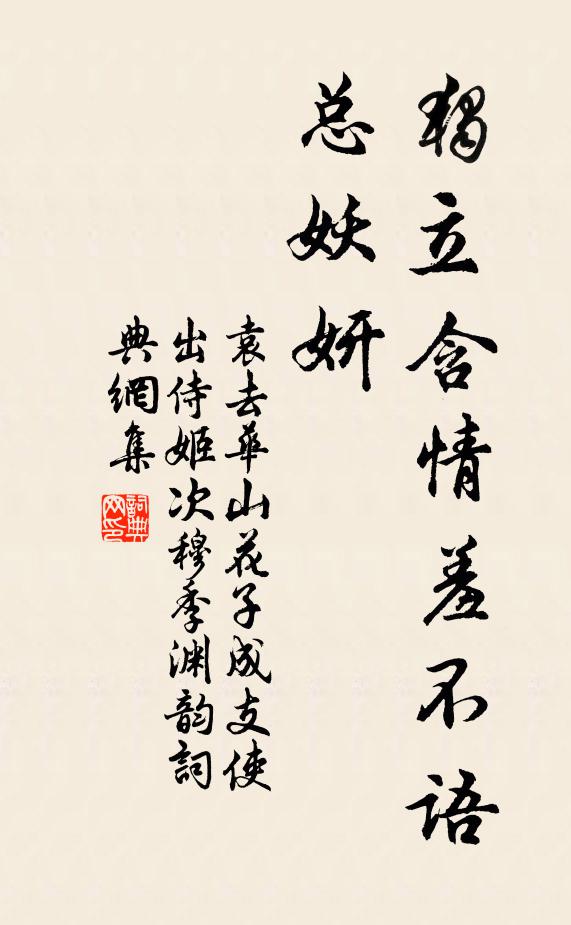 獨立含情羞不语
总妖妍
袁去華山花子成支使
出侍姬次穆季渊韵詞
典網集
詞典
网印